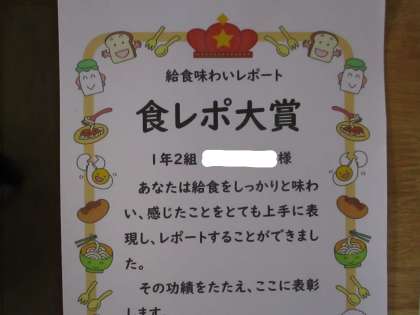 給食味わいレポート
食レポ大賞
1年2組 様
あなたは給食をしっかりと味わ
い、感じたことをとても上手に表
現し、レポートすることができまし
た。
その功績をたたえ、ここに表彰
します。